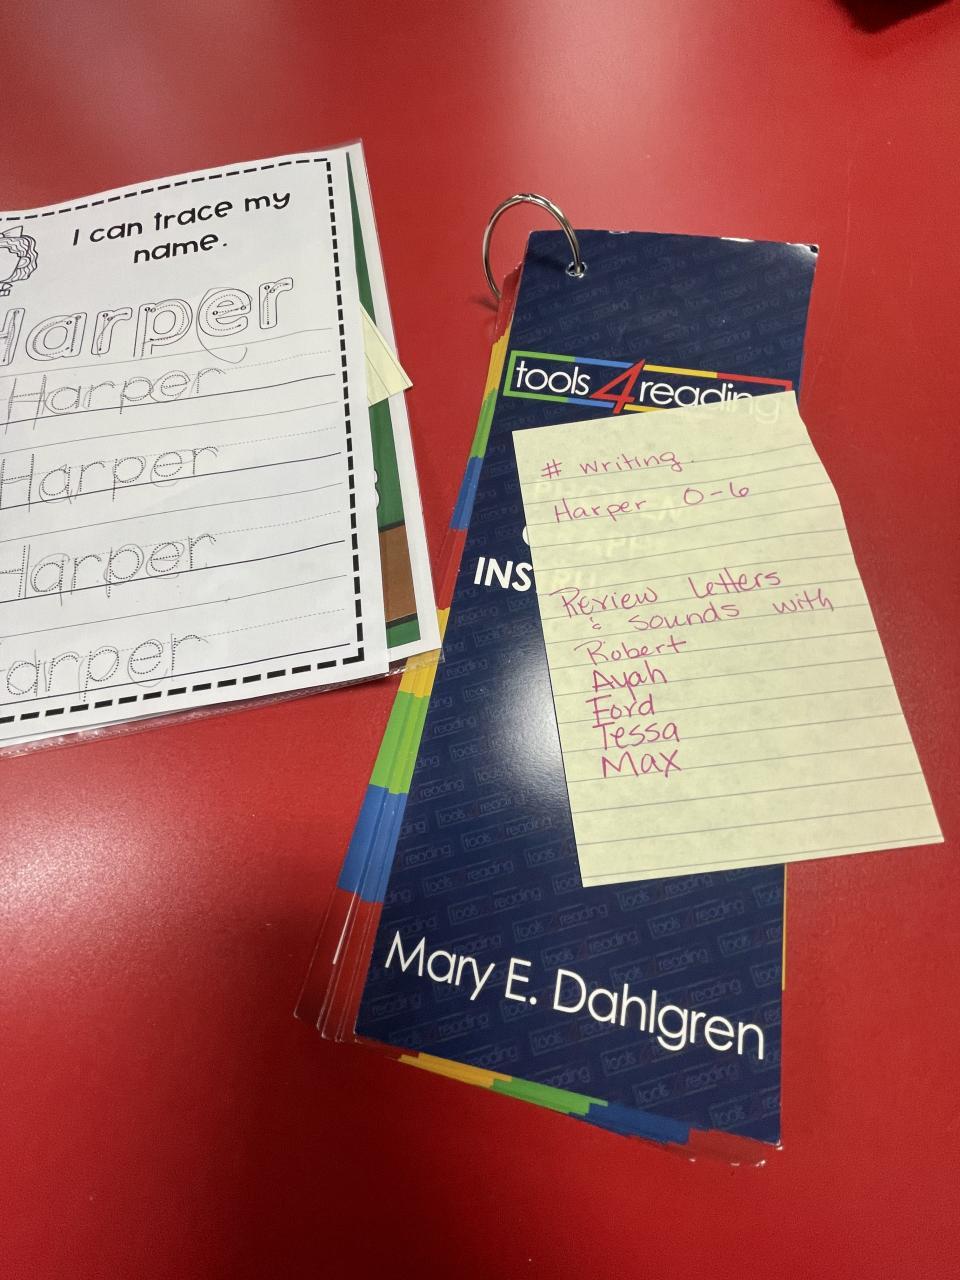 I can trace my
name.
Harper
Harper
Harper
Harper
arper
tools 4 reading
INS
# writing
Harper 0-6
Review letters
& sounds with
Robert
Ayah
Ford
Tessa
Max
Mary E. Dahlgren